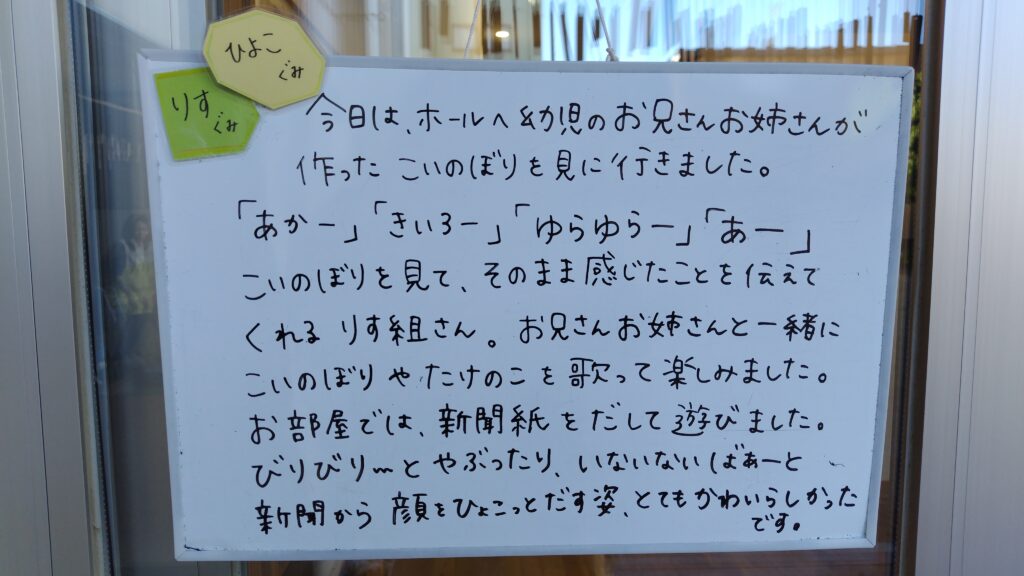 ひよこ
ぐみ
りす
ぐみ
今日は、ホールへ幼児のお兄さんお姉さんが
作った こいのぼりを見に行きました。
「あかー」「きいろー」「ゆらゆらー」「あー」
こいのぼりを見て、そのまま感じたことを伝えて
くれる りす組さん。お兄さんお姉さんと一緒に
こいのぼりや たけのこを歌って楽しみました。
お部屋では、新聞紙をだして遊びました。
びりびり〜とやぶったり、いないいないばぁーと
新聞から 顔をひょこっとだす姿、とてもかわいらしかった
です。